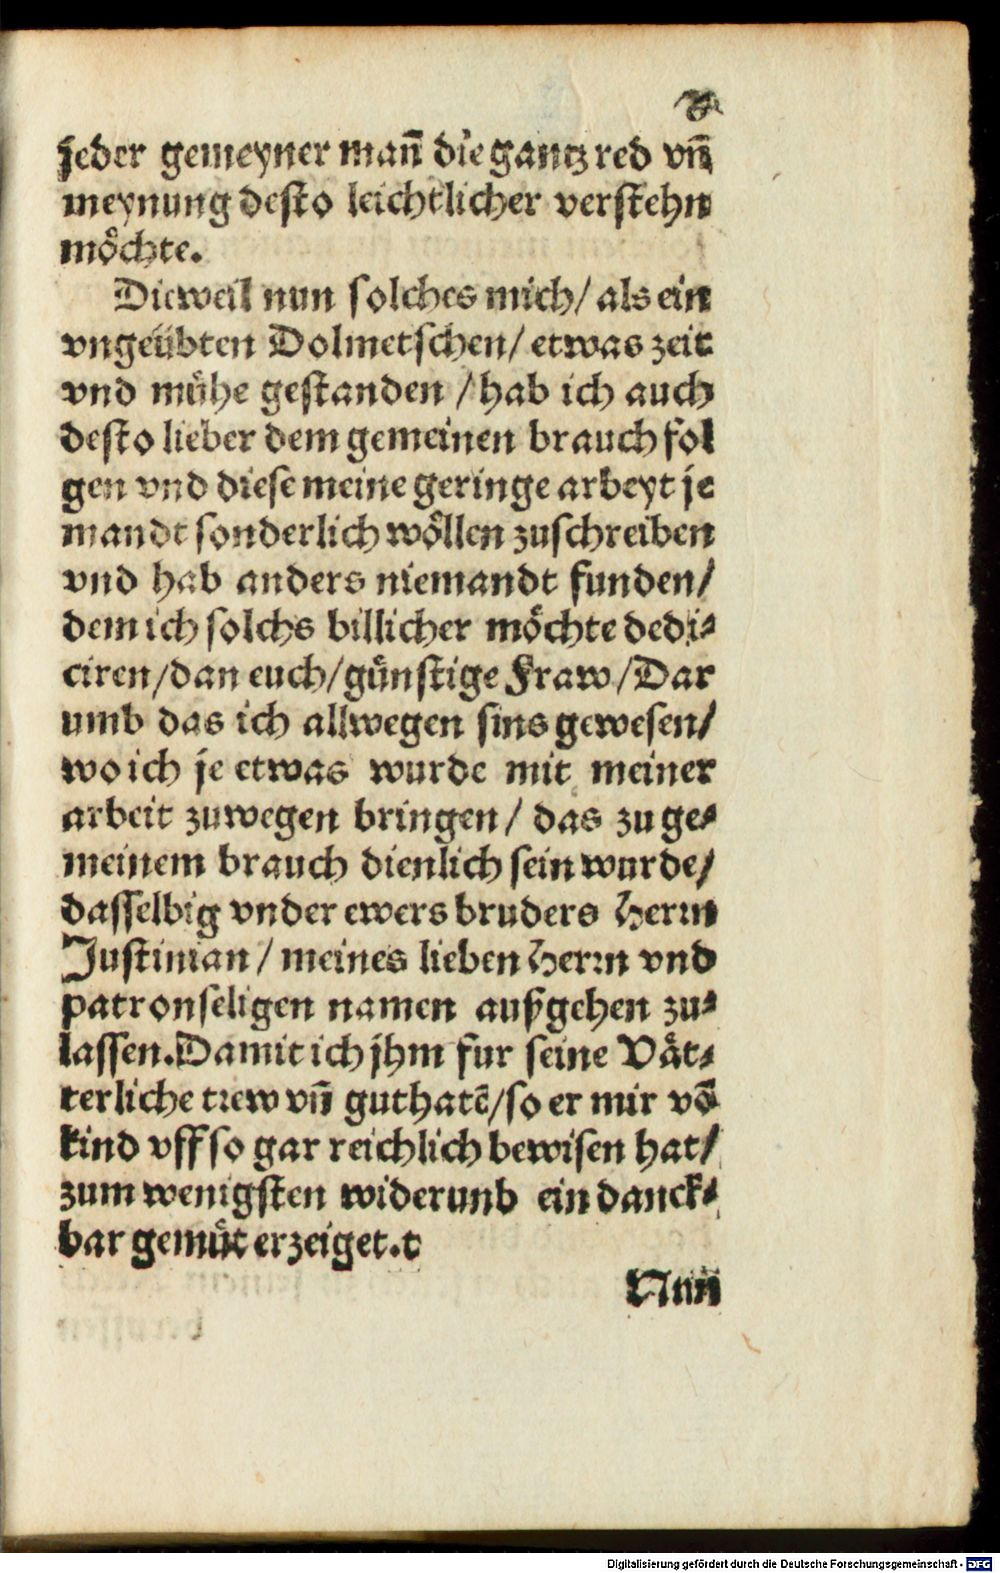 jeder gemeyner man̄ die gantz red vn̄
meynung desto leichtlicher verstehn
moͤchte.
Dieweil nun solches mich/ als ein
vngeuͤbten Dolmetschen/ etwas zeit
vnd muͤhe gestanden / hab ich auch
desto lieber dem gemeinen brauch fol
gen vnd diese meine geringe arbeyt je
mandt sonderlich woͤllen zuschreiben
vnd hab anders niemandt funden/
dem ich solchs billicher moͤchte dedi⸗
ciren/dan euch/guͤnstige Fraw/Dar
umb das ich allwegen sins gewesen/
wo ich je etwas wurde mit meiner
arbeit zuwegen bringen/ das zu ge⸗
meinem brauch dienlich sein wurde/
dasselbig vnder ewers bruders Herrn
Justinian/ meines lieben Herrn vnd
patron seligen namen außgehen zu⸗
lassen. Damit ich jhm fur seine Vaͤt⸗
terliche trew vn̄ guthatē/so er mir vō
kind vff so gar reichlich bewisen hat/
zum wenigsten widerunb ein danck⸗
bar gemuͤt erzeiget.t
Nun
Digitalisierung gefördert durch die Deutsche Forschungsgemeinschaft - DFG